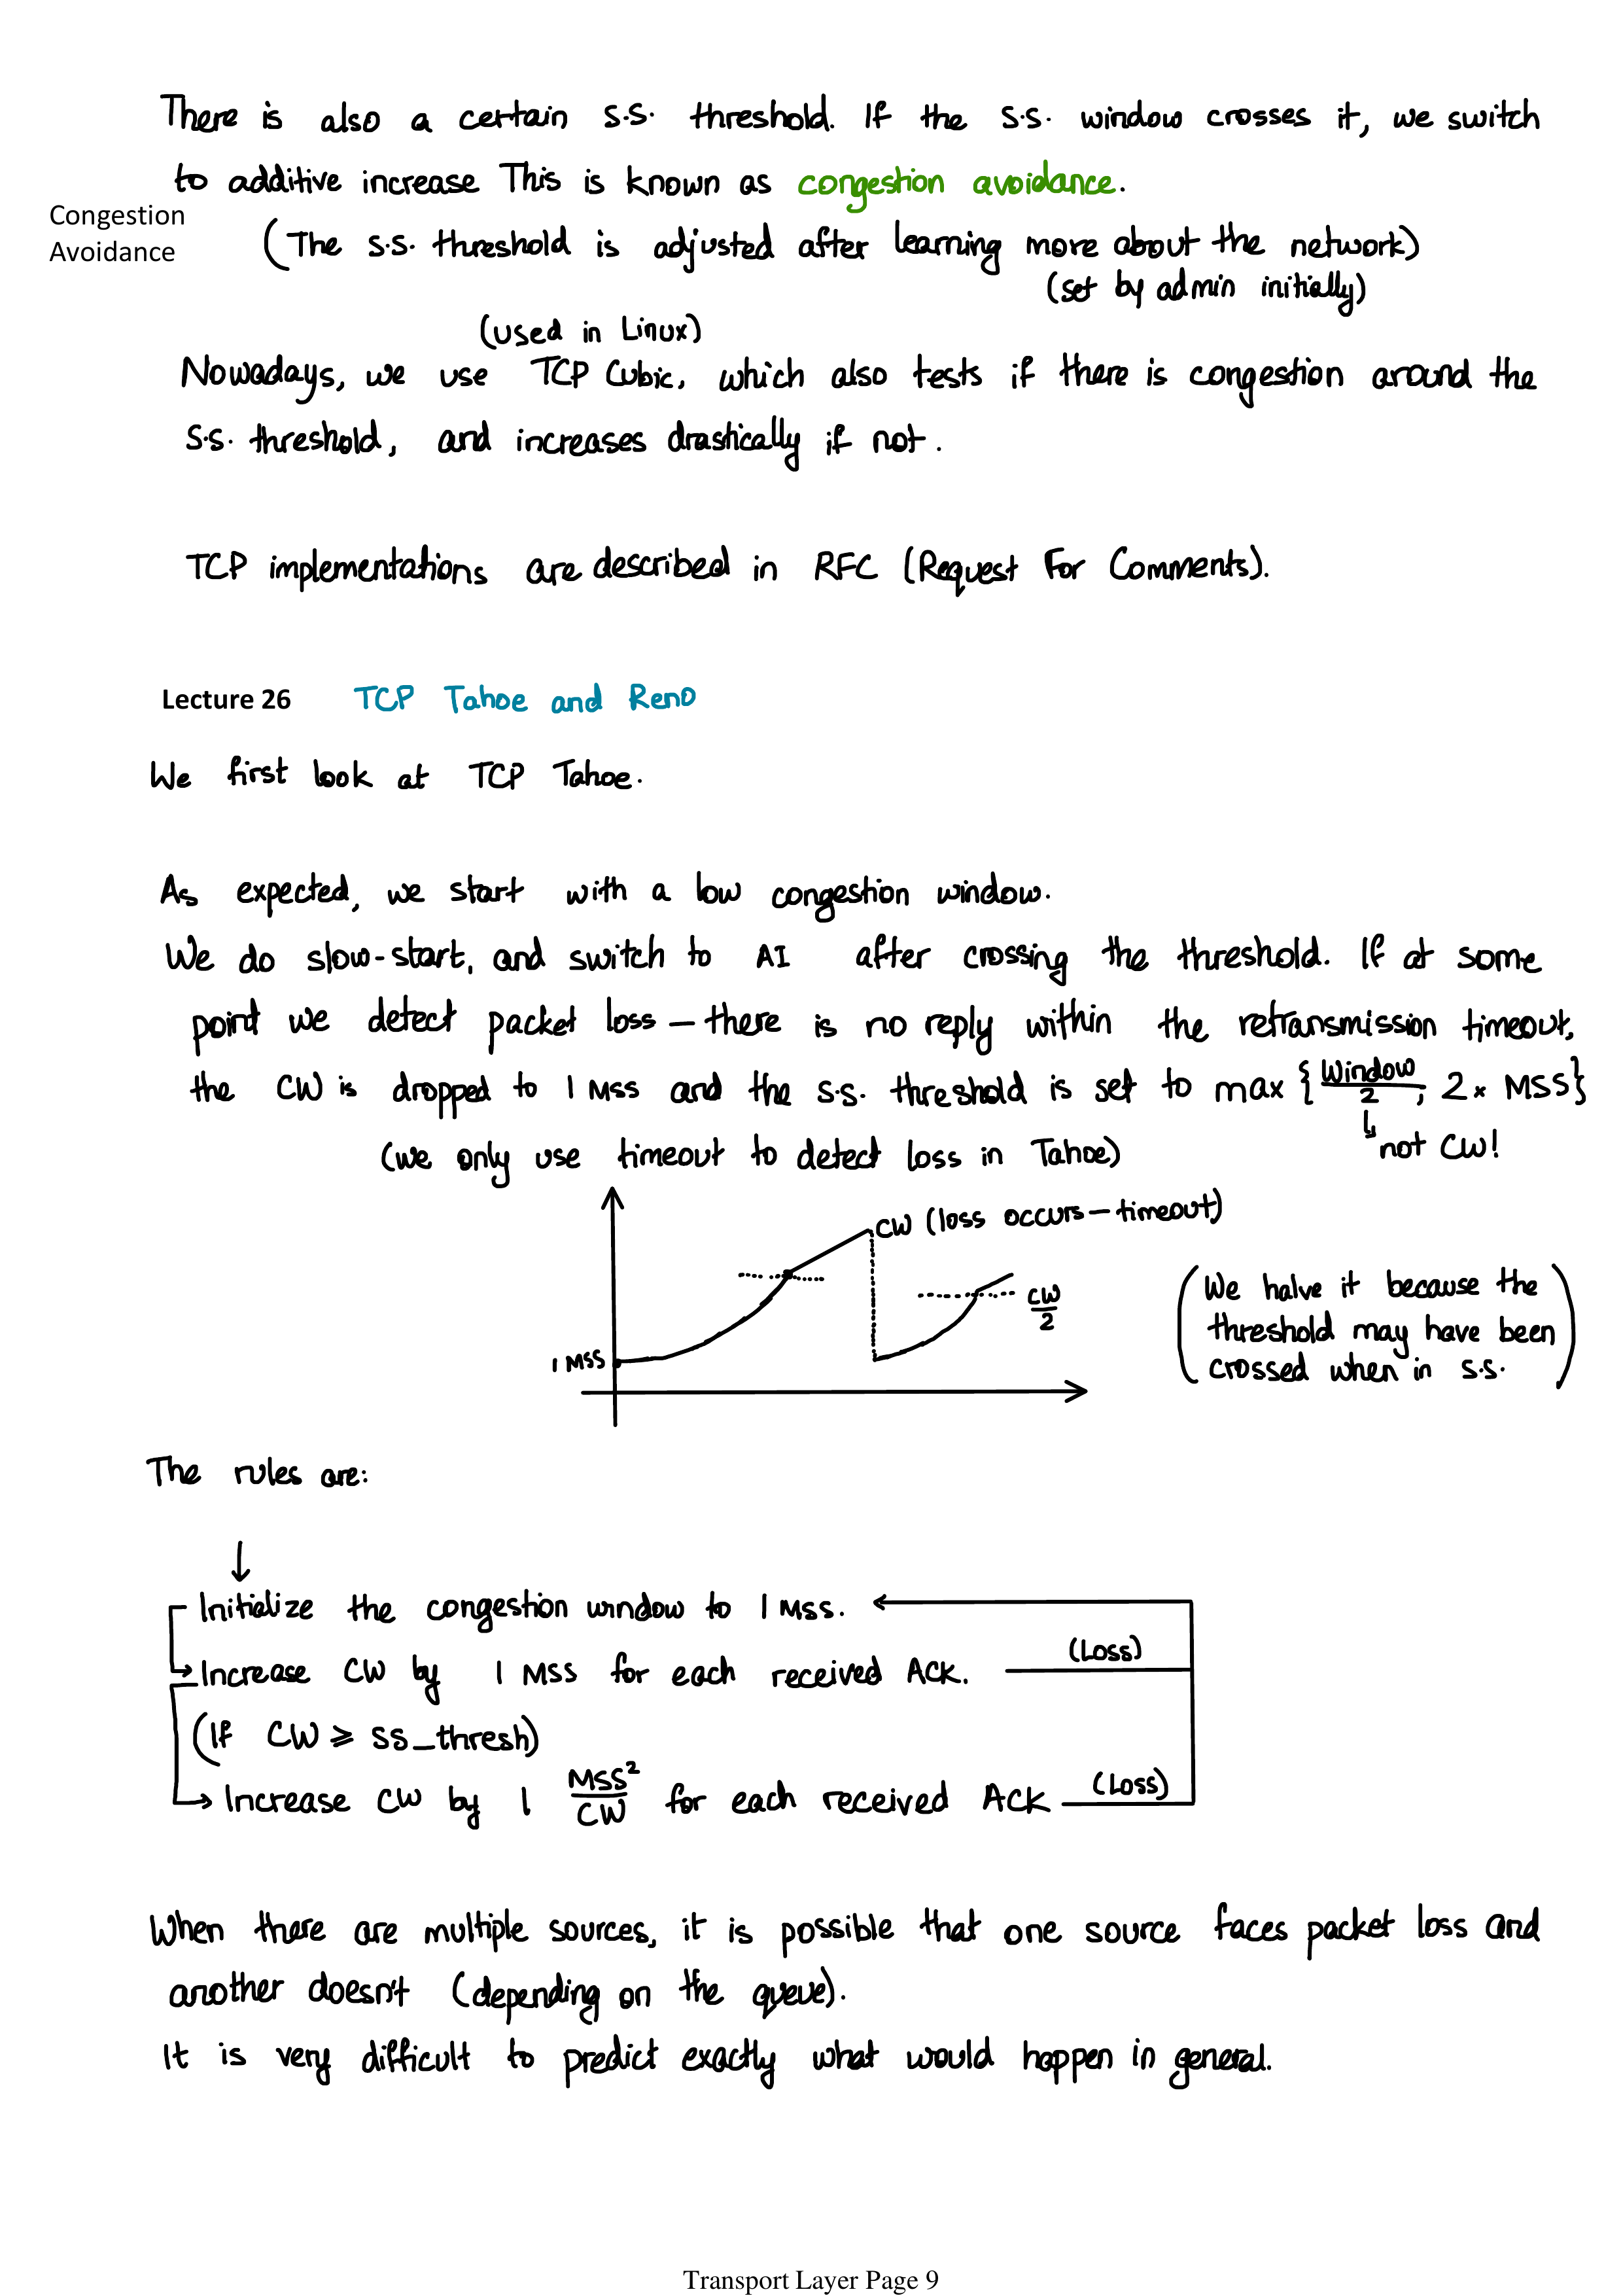 There is also a certain s.s. threshold. If the s.s. window crosses it, we switch
to additive increase This is known as congestion avoidance.
Congestion
Avoidance
(The s.s. threshold is adjusted after learning more about the network)
(set by admin initially)
(used in Linux)
Nowadays, we use TCP Cubic, which also tests if there is congestion around the
s.s. threshold, and increases drastically if not.
TCP implementations are described in RFC (Request For Comments).
Lecture 26 TCP Tahoe and Reno
We first look at TCP Tahoe.
As expected, we start with a low congestion window.
We do slow-start, and switch to AI after crossing the threshold. If at some
point we detect packet loss — there is no reply within the retransmission timeout,
the CW is dropped to 1 MSS and the s.s. threshold is set to max {Window/2, 2 × MSS}
↳ not CW!
(we only use timeout to detect loss in Tahoe)
CW (loss occurs — timeout)
CW/2
1 MSS
(We halve it because the
threshold may have been
crossed when in s.s.)
The rules are:
↓
Initialize the congestion window to 1 MSS.
(Loss)
→ Increase CW by 1 MSS for each received ACK.
(If CW ≥ ss_thresh)
→ Increase CW by 1 MSS²/CW for each received ACK (Loss)
When there are multiple sources, it is possible that one source faces packet loss and
another doesn't (depending on the queue).
It is very difficult to predict exactly what would happen in general.
Transport Layer Page 9